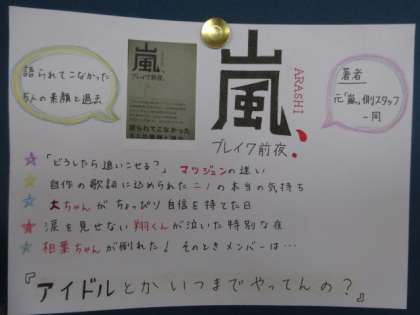 語られてこなかった
5人の素顔と過去
嵐、
ブレイク前夜
語られてこなかった
5人の素顔と過去
嵐、
ARASHI
ブレイク前夜。
著者
元「嵐」側スタッフ
一同
「どうしたら追いこせる?」マツジュンの迷い
自作の歌詞に込められたニノの本当の気持ち
大ちゃんがちょっぴり自信を持てた日
涙を見せない翔くんが泣いた特別な夜
相葉ちゃんが倒れた！そのときメンバーは…
『アイドルとかいつまでやってんの？』